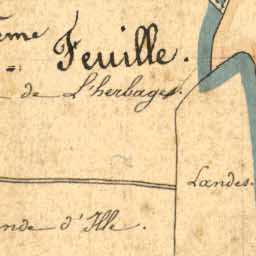 ème
Feuille.
de L'herbages
Landes.
nde d'Ille.